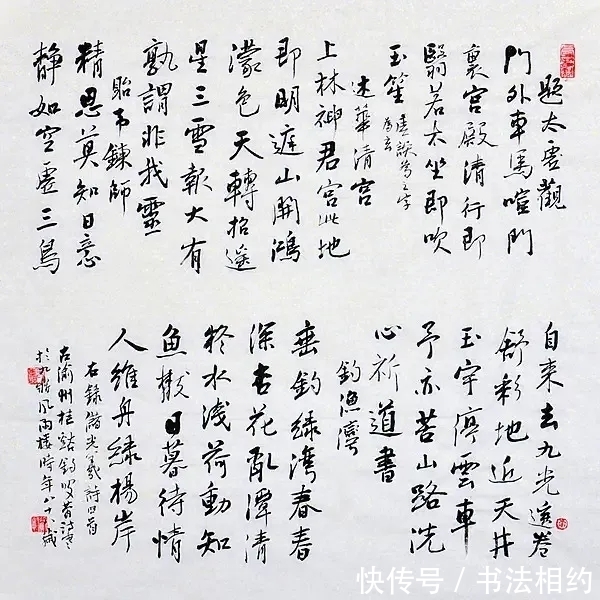 題太虛觀
門外車馬喧門
裏宮殿清行即
翳若木坐即吹
玉笙
述華清宮
上林神君宮此地
即明庭山開鴻
濛色天轉招遙
星三雪報大有
孰謂非我靈
貽韦鍊師
精思莫知日意
静如空虛三鳥
自來去九光遙卷
舒彩地近天井
玉宇停雲車
予亦苦山路洗
心祈道書
釣漁灣
垂釣綠灣春春
深杏花亂潭清
疑水淺荷動知
魚散日暮待情
人維舟綠楊岸
右錄儲光羲詩四首
古渝州桂 釣叟
於 風雨樓時年八十 歲
快传号 / 书法相约